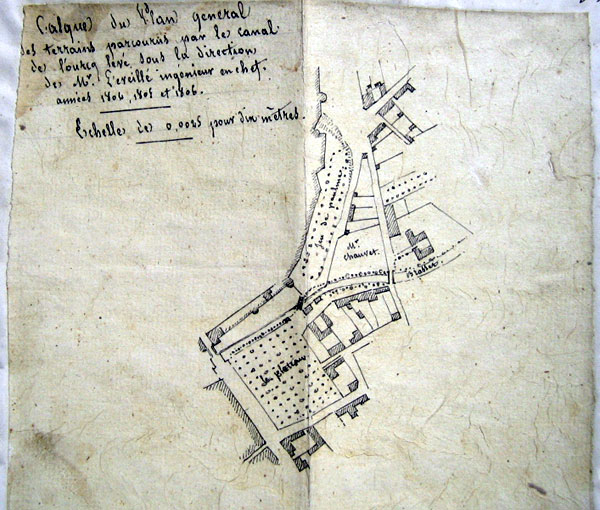 Calque du Plan general
des terrains parcourus par le canal
de l'ourcq levé sous la direction
de Mr. L'eveillé ingenieur en chef.
années 1804, 1805 et 1806.
Echelle de 0,0025 pour dix mètres.
jeu de paulme
Mr. chauvet.